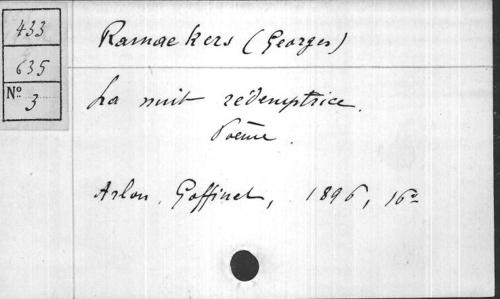 433
635
Nº 3
Ramaekers (Georges)
La nuit rédemptrice.
Poème.
Arlon, Goffinet, 1896, 16º